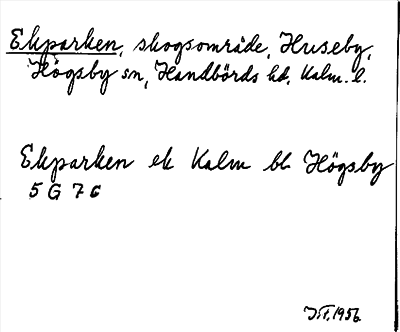 Ekparken, skogsområde, Huseby,
Högsby sn, Handbörds hd, Kalm. l.
Ekparken ek Kalm bl Högsby
5 G 7 c
1956